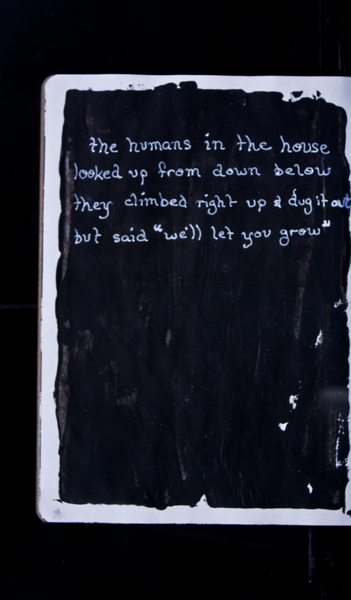 the humans in the house
looked up from down below
they climbed right up & dug it out
but said "we'll let you grow"